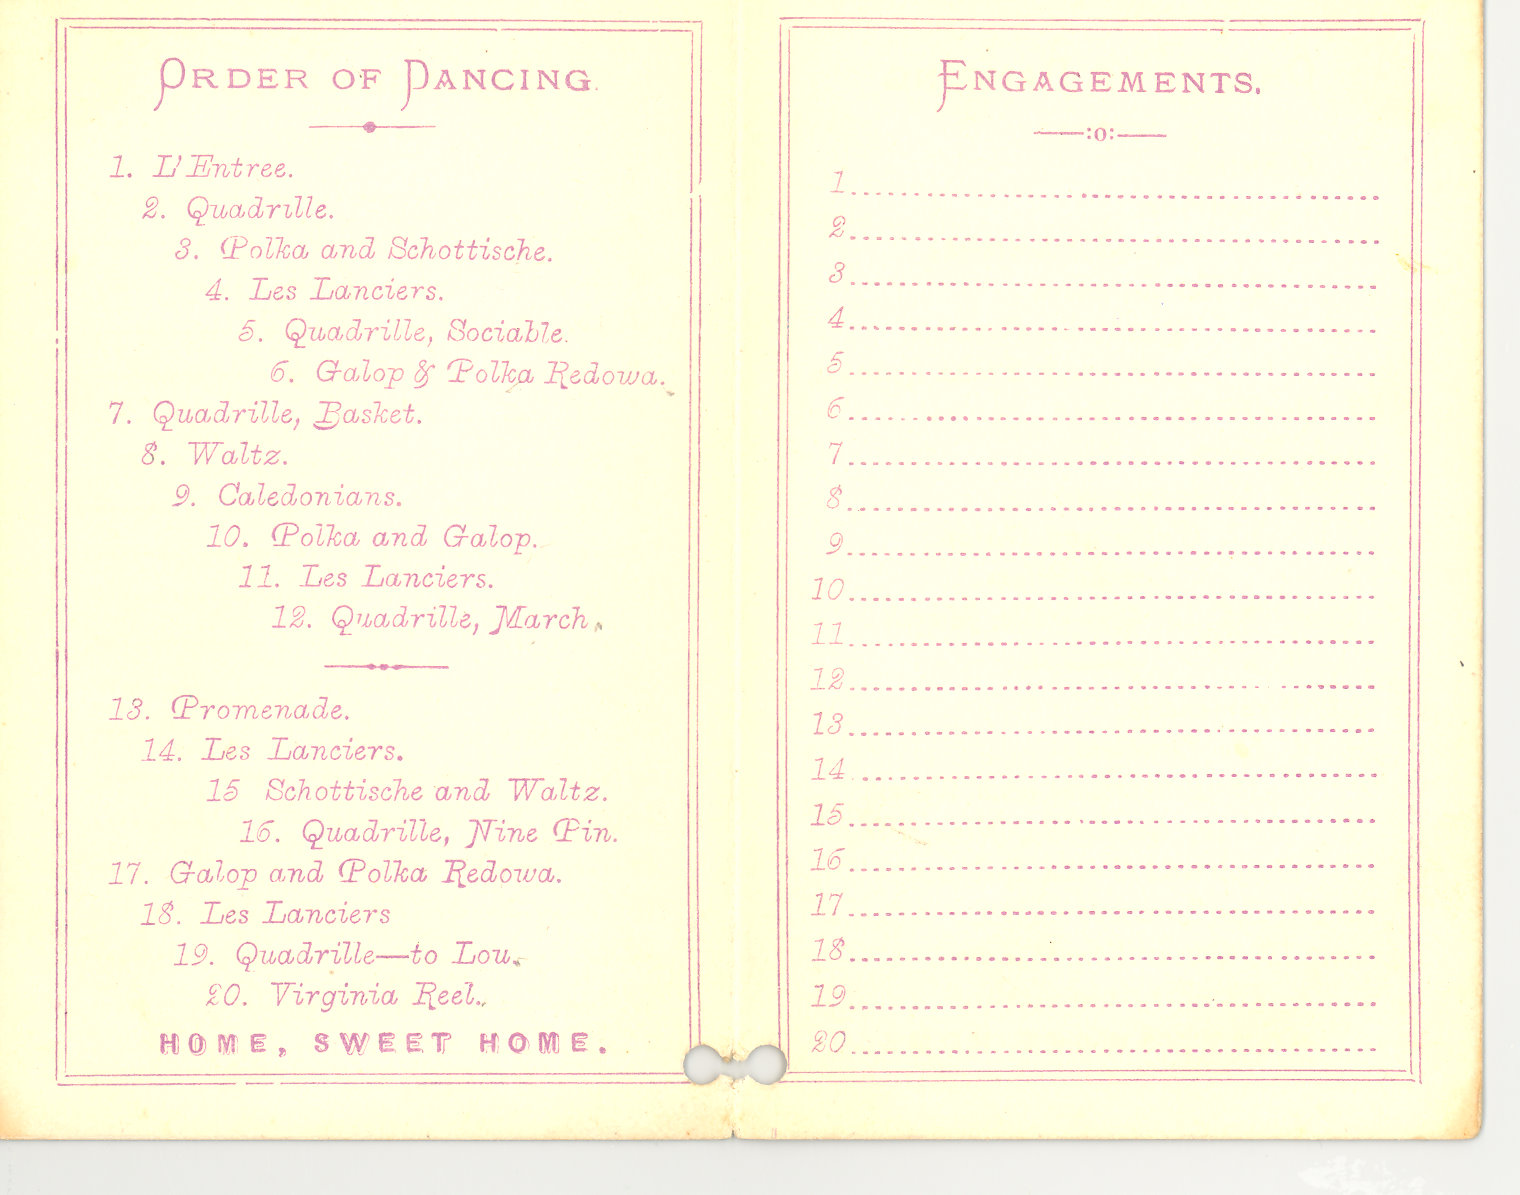 ORDER OF DANCING.
1. L'Entree.
2. Quadrille.
3. Polka and Schottische.
4. Les Lanciers.
5. Quadrille, Sociable.
6. Galop & Polka Redowa.
7. Quadrille, Basket.
8. Waltz.
9. Caledonians.
10. Polka and Galop.
11. Les Lanciers.
12. Quadrille, March.
13. Promenade.
14. Les Lanciers.
15 Schottische and Waltz.
16. Quadrille, Nine Pin.
17. Galop and Polka Redowa.
18. Les Lanciers
19. Quadrille—to Lou.
20. Virginia Reel.
HOME, SWEET HOME.
ENGAGEMENTS.
:o:
1
2
3
4
5
6
7
8
9
10
11
12
13
14
15
16
17
18
19
20